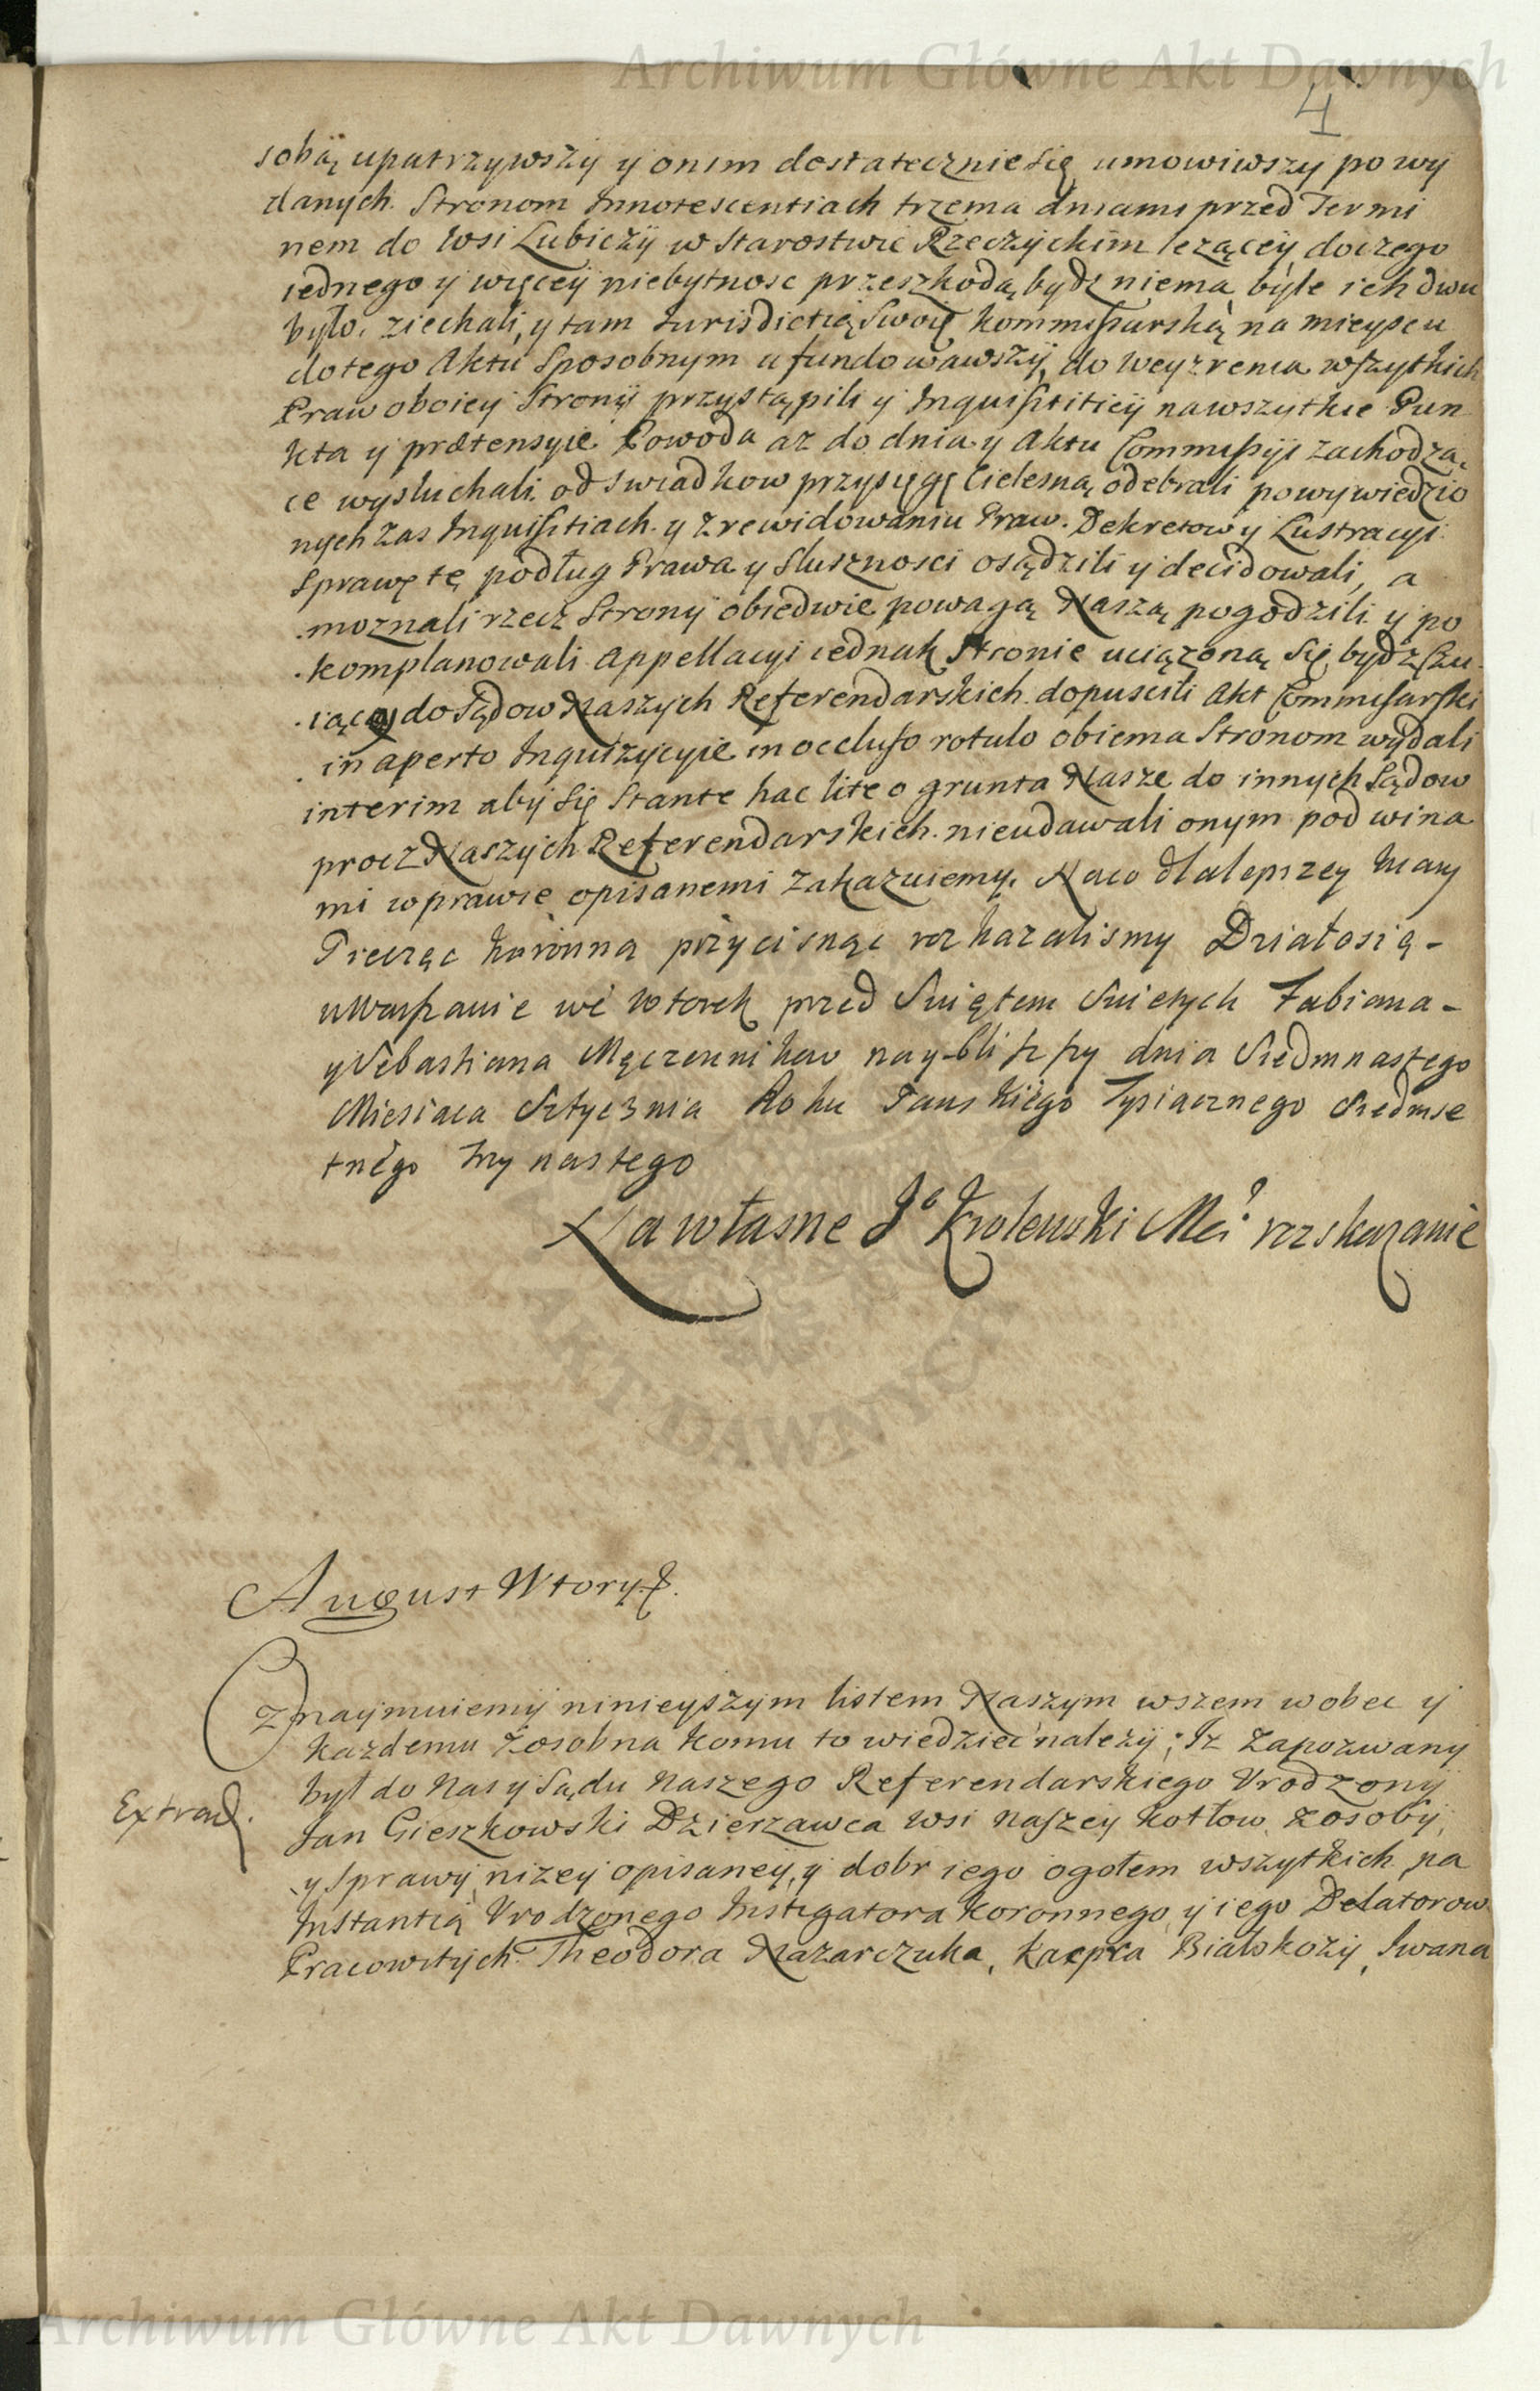 Archiwum Główne Akt Dawnych
4
sobą upatrzywszy y onim dostatecznie się umowiwszy po wy
danych Stronom Innotescentiach trzema dniami przed Termi
nem do Wsi Lubiczy w Starostwie Rzeczyckim lezącey doczego
iednego y więcey niebytnosc przeszkodą bydz niema byle ich dwu
było, ziechali, y tam Iurisdictią Swoię Kommissarską na mieyscu
do tego Aktu Sposobnym ufundowawszy, do weyzrenia wszytkich
Praw oboiey Strony przystąpili y Inquisititiey nawszytkie Pun
kta y prætensyie Powoda az do dnia y Aktu Commissyi zachodzą
ce wysłuchali od Swiadkow przysięgę Cielesną odebrali powywiedzio
nych zas Inquisitiach y zrewidowaniu Praw. Dekretow y Lustracyi
Sprawę tę podług Prawa y Słusznosci osądzili y decidowali, a
moznali rzecz Strony obiedwie powagą Naszą pogodzili y po
komplanowali Appellacyi iednak Stronie uciązoną się bydz Czu
iącey do Sądow Naszych Referendarskich dopuscili Akt Commissarski
in aperto Inquizycyie in occluso rotulo obiema Stronom wydali
interim aby się Stante hac lite o grunta Nasze do innych Sądow
procz Naszych Referendarskich nieudawali onym pod wina
mi wprawie opisanemi zakazuiemy. Naco dla lepszey Wiary
Pieczęc koronną przycisnąc rozkazalismy Działosię
w Warszawie we Wtorek przed Swiętem Swietych Fabiana
y Sebastiana Męczennikow nay-bliszszy dnia Siedmnastego
Miesiaca Stycznia Roku Panskiego Tysiacznego Siedmse
tnego trzynastego
Na własne Jo Krolewski Mci rozskazanie
August Wtory
Extrad.
Oznaymuiemy ninieyszym listem Naszym wszem wobec y
kazdemu zosobna komu to wiedziec nalezy; Iz Zapozwany
był do Nas y Sądu Naszego Referendarskiego Urodzony
Jan Cieszkowski Dzierzawca wsi naszey Kotłow zosoby,
y Sprawy nizey opisaney, y dobr iego ogołem wszytkich na
Instantią Urodzonego Instigatora Koronnego y iego Delatorow
Pracowitych Theodora Nazarczuka, Kacpra Białokozy, Iwana
AKT DAWNYCH
Archiwum Główne Akt Dawnych